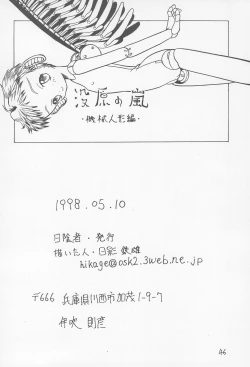 没原の嵐
・機械人形編・
1998.05.10
日陰者・発行
描いた人・日影 鉄雄
hikage@osk2.3web.ne.jp
〒666 兵庫県川西市加茂1-9-7
伊吹 則彦
46